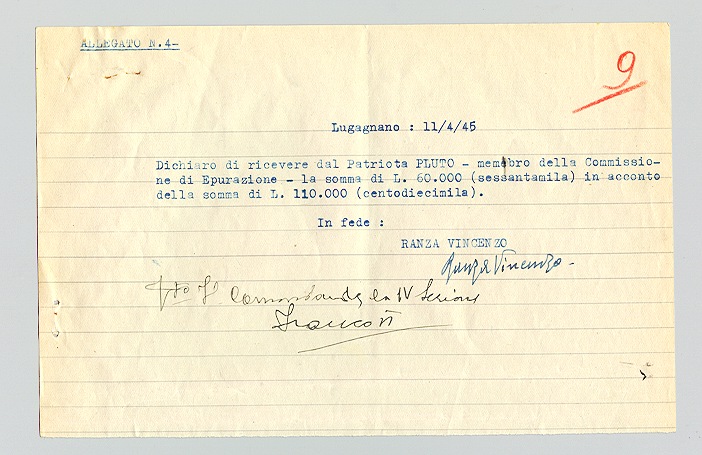 ALLEGATO N.4-
9
Lugagnano : 11/4/45
Dichiaro di ricevere dal Patriota PLUTO - membro della Commissio-
ne di Epurazione - la somma di L. 60.000 (sessantamila) in acconto
della somma di L. 110.000 (centodiecimila).
In fede :
RANZA VINCENZO
Ranza Vincenzo